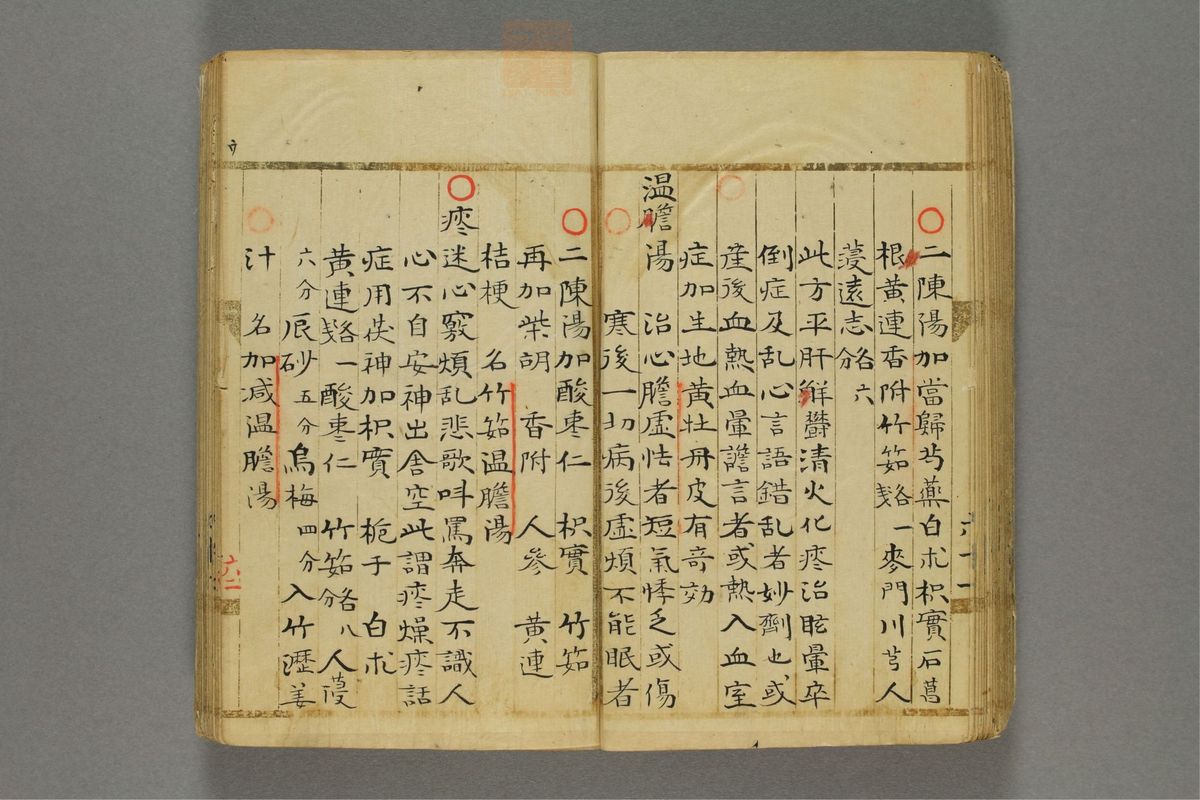 二陳陽加當歸芍薬白朮枳實石菖
根黄連香附竹筎各一戔麥門川芎人
蓡遠志各六分
此方平肝觧鬱清火化痰治眩暈卒
倒症及乱心言語錯乱者妙劑也或
産後血熱血暈譫言者或熱入血室
症加生地黄牡丹皮有奇効
温膽湯 治心膽虚怯者短氣悸乏或傷
寒後一切病後虚煩不能眠者
二陳陽加酸枣仁 枳實 竹筎
再加柴胡 香附 人參 黄連
桔梗 名竹筎温膽湯
痰迷心竅煩乱悲歌呌罵奔走不識人
心不自安神出舎空此謂痰燥痰話
症用茯神加枳實 梔子 白朮
黄連各一戔酸枣仁 竹筎各八分人蓡
六分辰砂五分烏梅四分入竹瀝姜
汁 名加减温膽湯
六一
六二